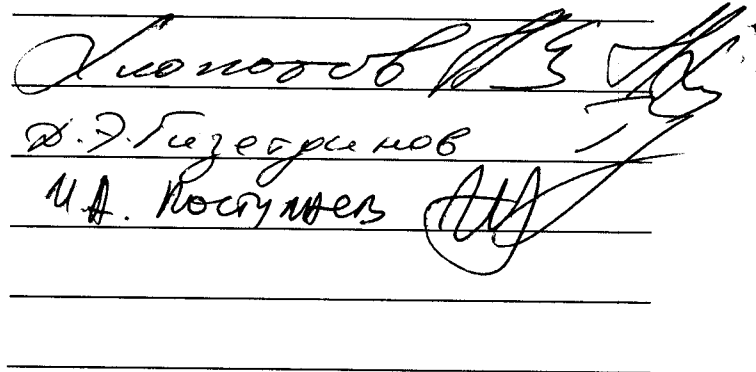 Хлопотов
Д.Э. Гизетдинов
И.А. Поступаев